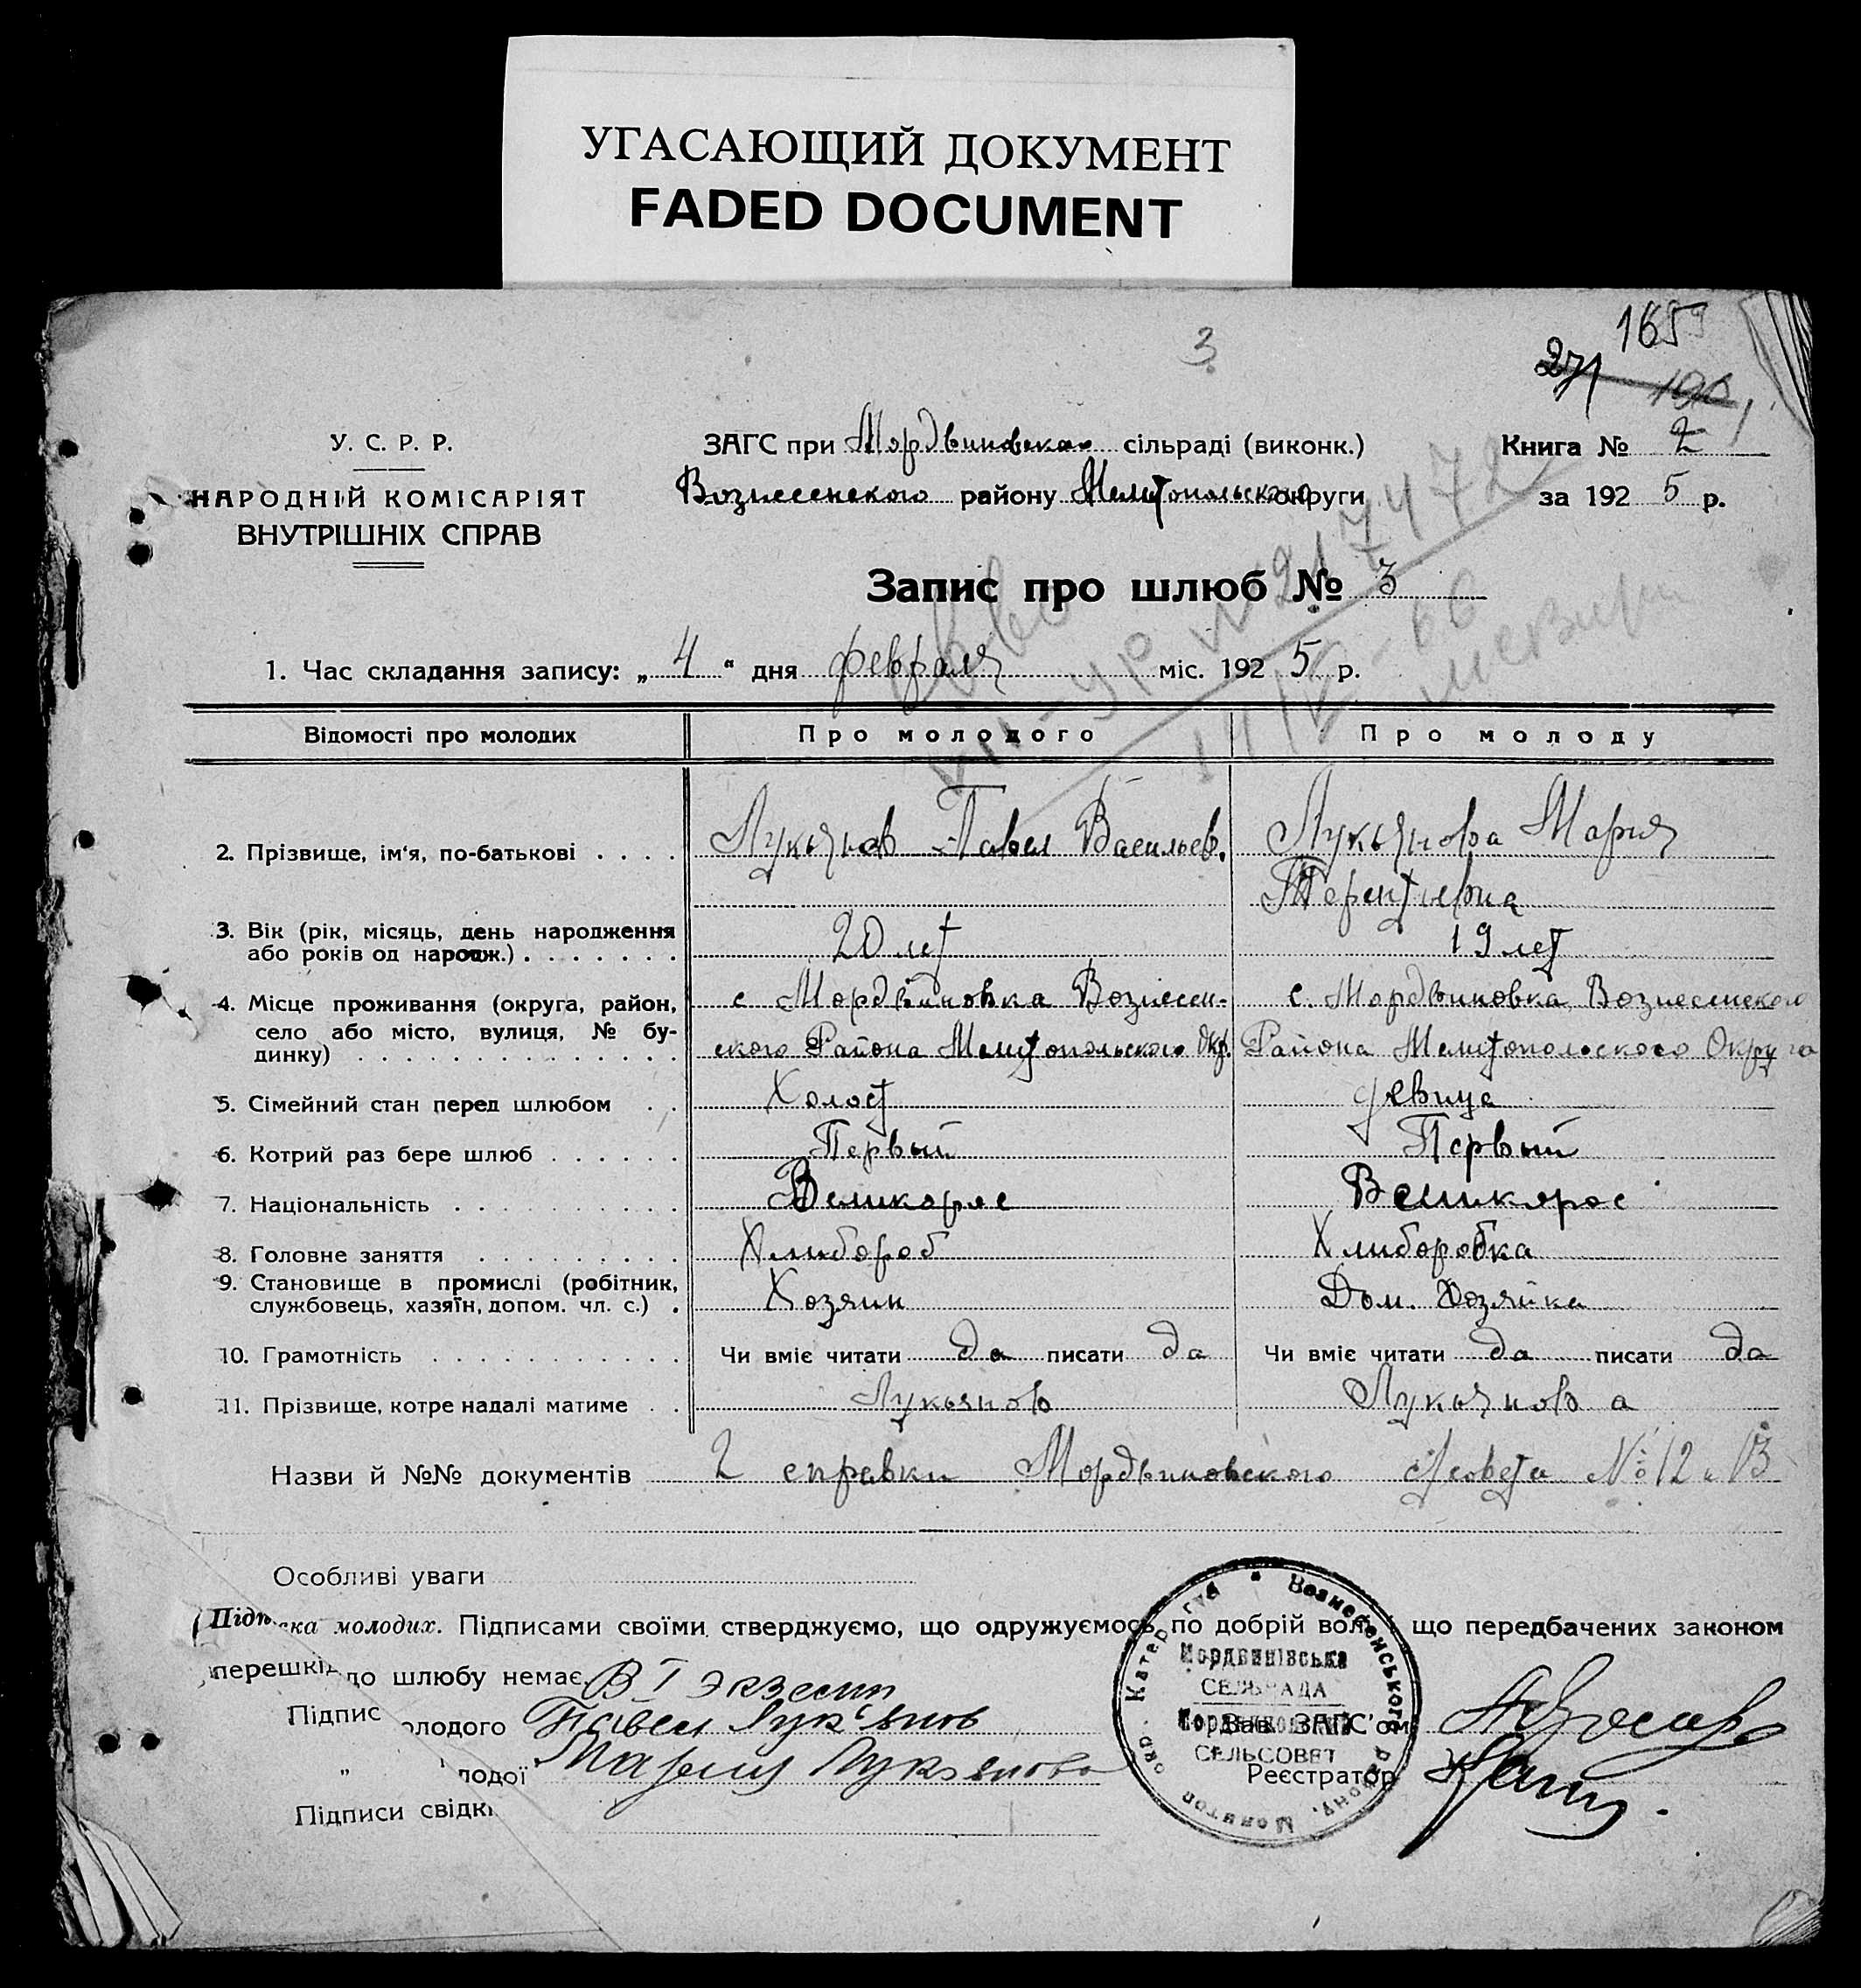 УГАСАЮЩИЙ ДОКУМЕНТ
FADED DOCUMENT
3
165
271
У. С. Р. Р.
НАРОДНІЙ КОМІСАРІЯТ
ВНУТРІШНІХ СПРАВ
ЗАГС при Мордвиновском сільраді (виконк.)
Вознесенского району Мелитопольского округи
Книга № 2
за 192 5 р.
Запис про шлюб № 3
1. Час складання запису: „ 4 “ дня февраля міс. 192 5 р.
Відомості про молодих Про молодого Про молоду
2. Прізвище, ім‘я, по-батькові . . . . Лукьянов Павел Васильев. Лукьянова Мария
Терентьевна
3. Вік (рік, місяць, день народження
або років од народж.) . . . . . . . 20 лет 19 лет
4. Місце проживання (округа, район, с Мордвиновка Вознесен- с. Мордвиновка Вознесенского
село або місто, вулиця, № бу-
динку) . . . . . . . . . . . . . . ского Района Мелитопольского Окр. Района Мелитопольского Округа
5. Сімейний стан перед шлюбом . . Холост девица
6. Котрий раз бере шлюб . . . . . . Первый Первый
7. Національність . . . . . . . . . . Великорос Великорос
8. Головне заняття . . . . . . . . . Хлибороб Хлиборобка
9. Становище в промислі (робітник,
службовець, хазяїн, допом. чл. с.) . Хозяин Дом. Хозяйка
10. Грамотність . . . . . . . . . . . Чи вміє читати да писати да Чи вміє читати да писати да
11. Прізвище, котре надалі матиме . . Лукьянов Лукьянова
Назви й №№ документів 2 справки Мордвиновского с/совета № 12 и 13
Особливі уваги
Підп ска молодих. Підписами своїми стверджуємо, що одружуємось по добрій волі що передбачених законом
перешкід до шлюбу немає. В I экземп
Підпис олодого Павел Лук'янов
Зав. ЗАГС’ом
„ лодої Мария Лукьянова
Реєстратор
Підписи свідк
Вознесенського району, Мелитоп. окр. Катер. губ.
Мордвинівська
СЕЛЬРАДА
Мордвиновский
СЕЛЬСОВЕТ